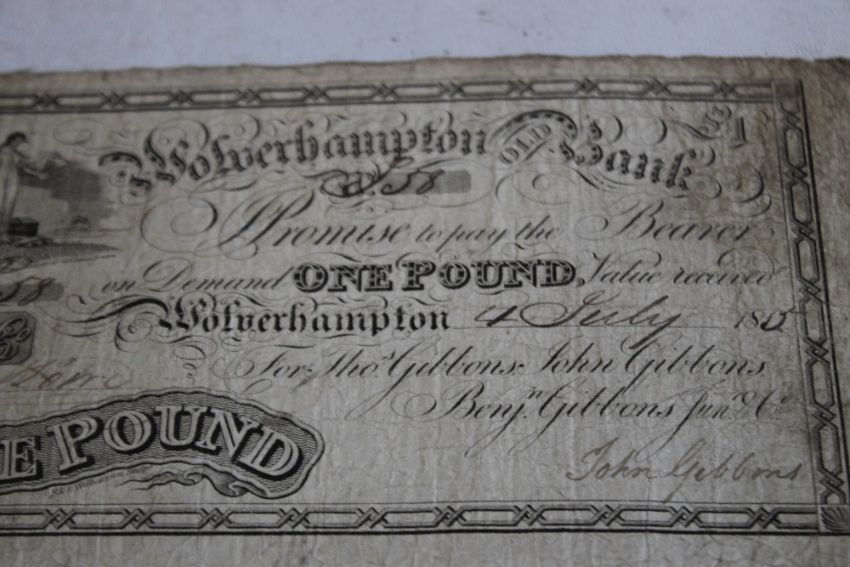 Wolverhampton OLD Bank £1
No. 58
Promise to pay the Bearer
58 on Demand ONE POUND, Value received
Wolverhampton 4 July 1815
For Thos. Gibbons, John Gibbons,
Benjn. Gibbons Junr. & Co.
E POUND
John Gibbons